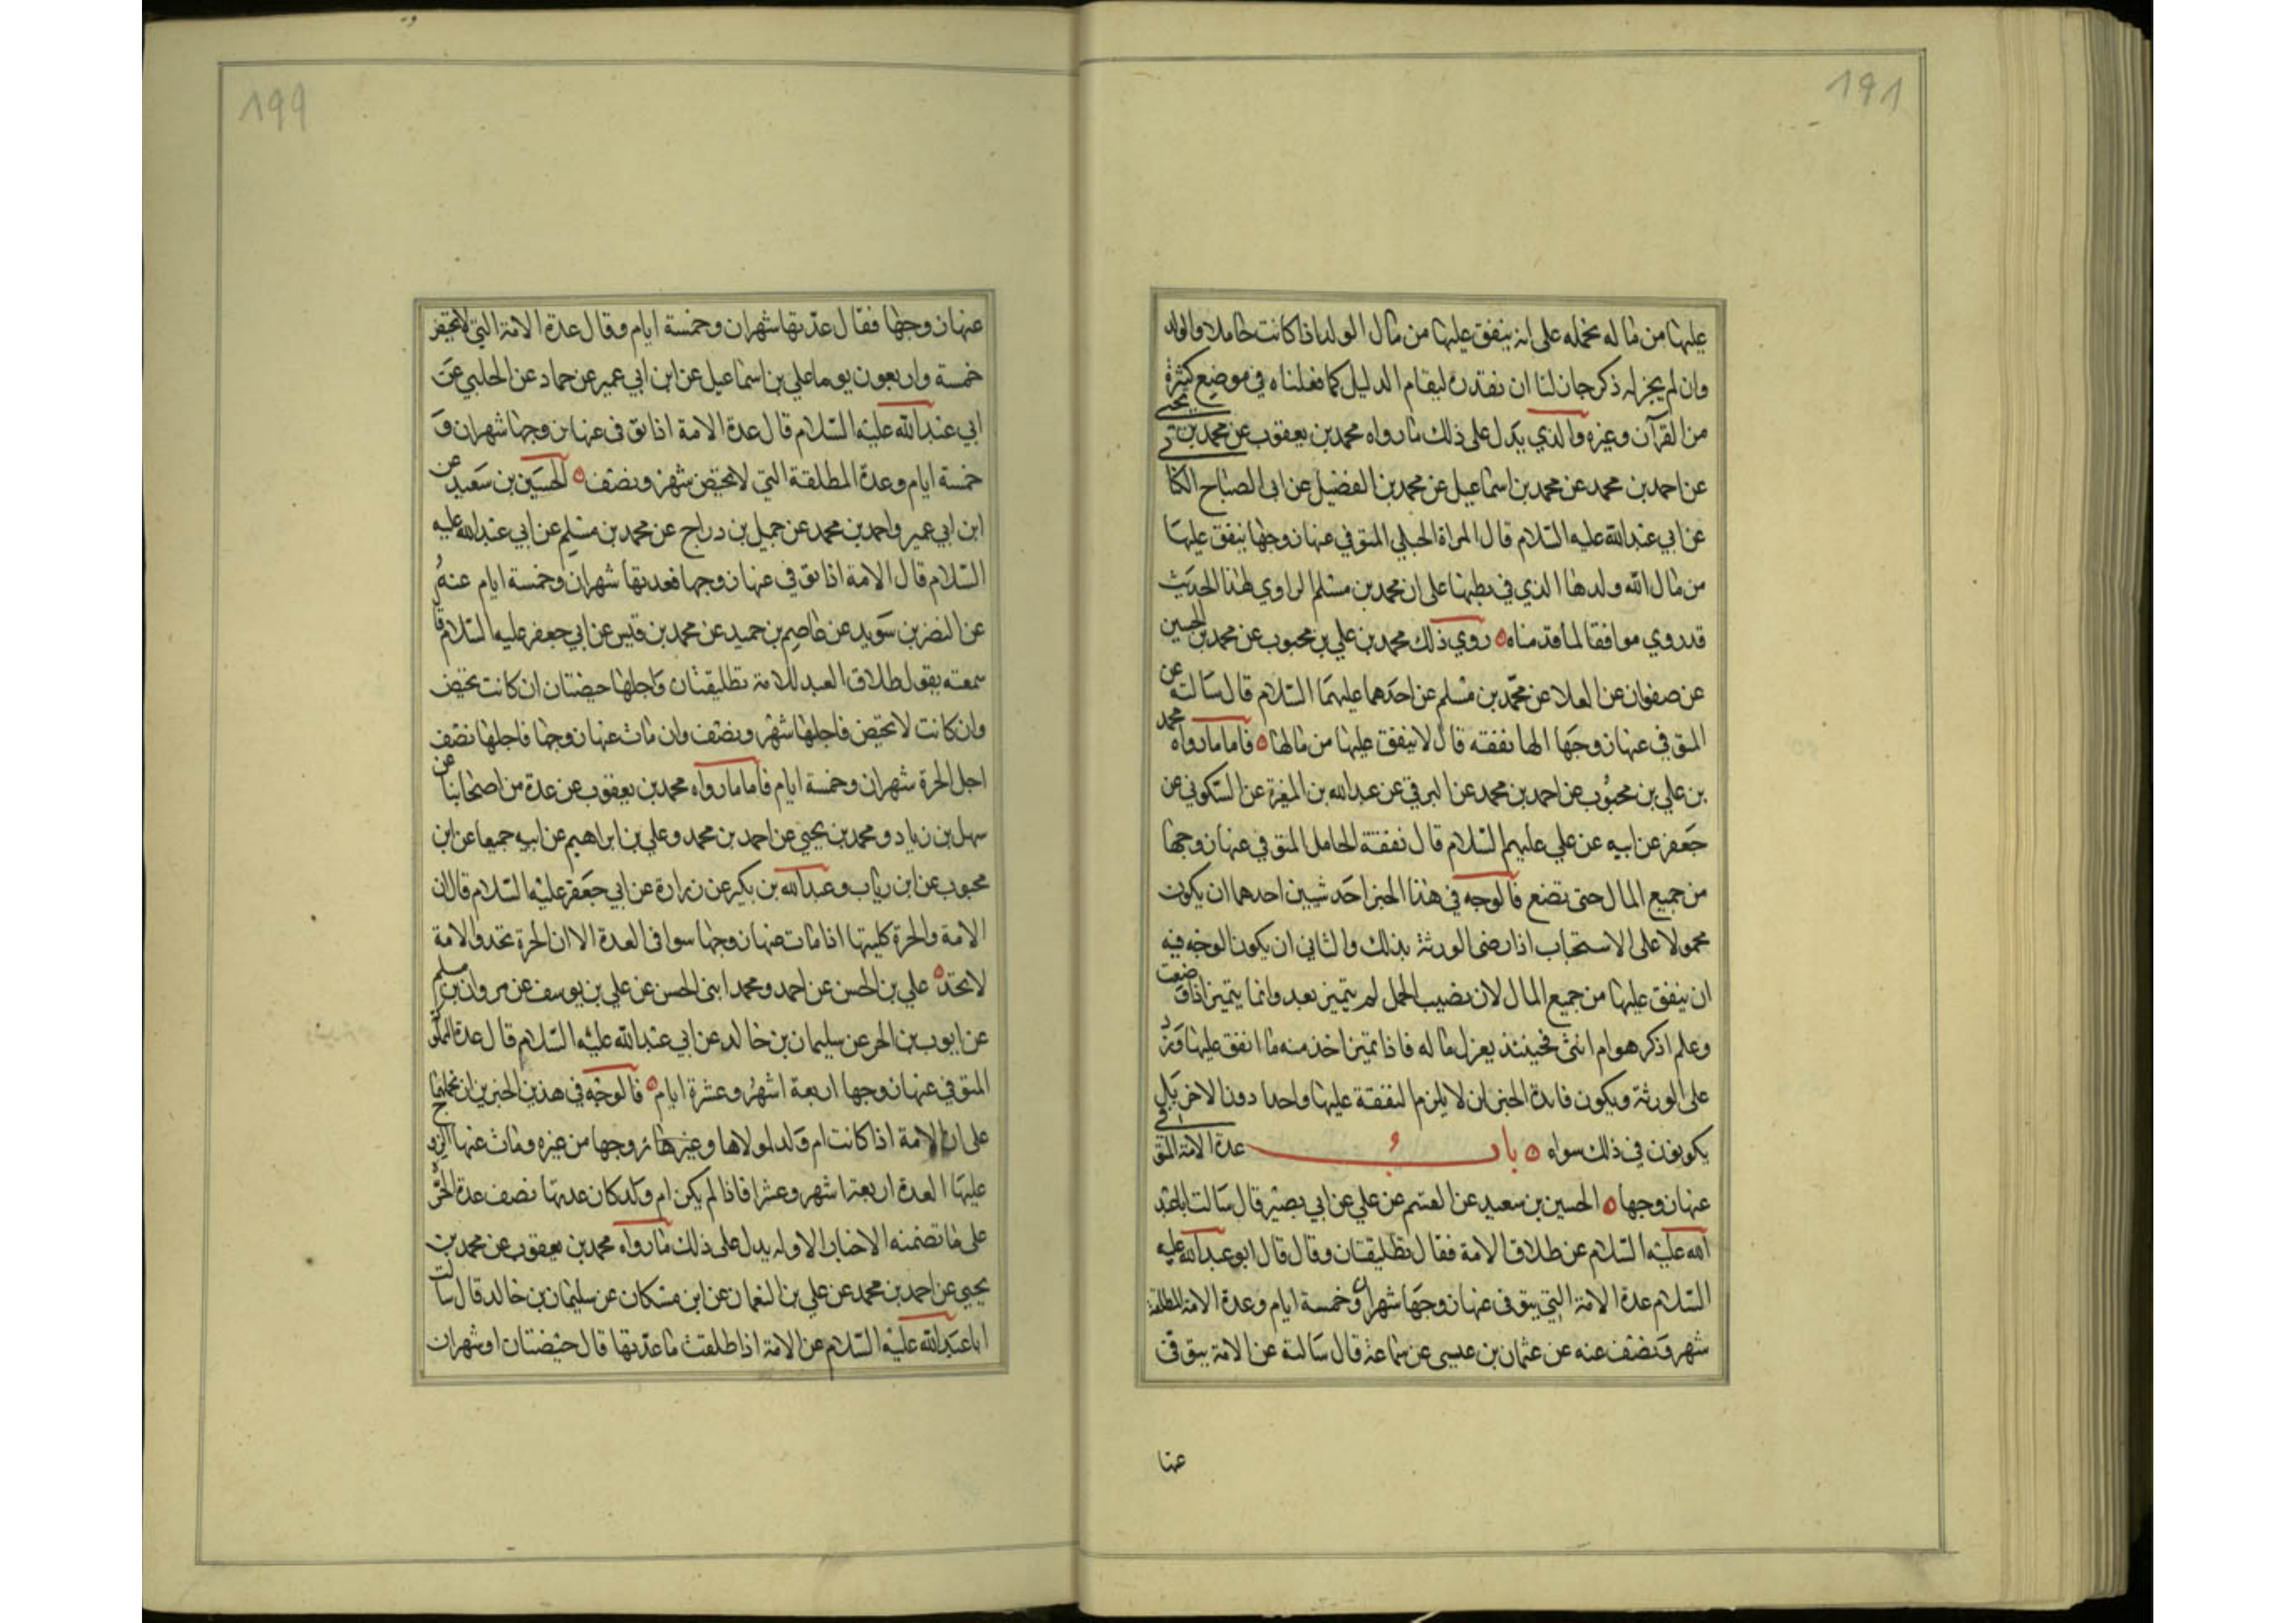 ١٩٨
عليها من ماله نحمله على انه ينفق عليها من مال الولد اذا كانت حاملا والولد
وان لم يجر له ذكر جاز لنا ان نقدره لقيام الدليل كما فعلناه في موضع كثيرة
من القرآن وغيره والذي يدل على ذلك ما رواه محمد بن يعقوب عن محمد بن يحيى
عن احمد بن محمد عن محمد بن اسماعيل عن محمد بن الفضيل عن ابى الصباح الكنا
عن ابي عبد الله عليه السلام قال المراة الحبلي المتوفي عنها زوجها ينفق عليها
من مال الله ولدها الذي في بطنها على ان محمد بن مسلم الراوي لهذا الحديث
قد روي موافقا لما قدمناه روي ذلك محمد بن علي بن محبوب عن محمد بن الحسين
عن صفوان عن العلا عن محمد بن مسلم عن احدهما عليهما السلام قال سالته عن
المتوفي عنها زوجها الها نفقته قال لا ينفق عليها من مالها فاما ما رواه محمد
بن علي بن محبوب عن احمد بن محمد عن البرقي عن عبد الله بن المغيرة عن السكوني عن
جعفر عن ابيه عن علي عليهم السلام قال نفقة الحامل المتوفي عنها زوجها
من جميع المال حتى تضع فالوجه في هذا الخبر احد شيين احدهما ان يكون
محمولا على الاستحباب اذا رضى الورثة بذلك والثاني ان يكون الوجه فيه
ان ينفق عليها من جميع المال لان نصيب الحمل لم يتميز بعد وانما يتميز اذا وضعت
وعلم اذكر هو ام انثى فحينئذ يعزل ماله فاذا تميز اخذ منه ما انفق عليها ورد
على الورثة ويكون فايدة الخبر ان لا يلزم النفقة عليها واحدا دون الاخر بل
يكونون في ذلك سواه باب عدة الامة المتوفي
عنها زوجها الحسين بن سعيد عن القسم عن علي عن ابي بصير قال سالت ابا عبد
الله عليه السلام عن طلاق الامة فقال تطليقتان وقال قال ابو عبد الله عليه
السلام عدة الامة التي يتوفى عنها زوجها شهران وخمسة ايام وعدة الامة المطلقة
شهر ونصف عنه عن عثمان بن عيسى عن سماعة قال سالته عن الامة يتوفى
عنها
١٩٩
عنها زوجها فقال عدتها شهران وخمسة ايام وقال عدة الامة التي لا تحيض
خمسة واربعون يوما علي بن اسماعيل عن ابن ابي عمير عن حماد عن الحلبي عن
ابي عبد الله عليه السلام قال عدة الامة اذا توفى عنها زوجها شهران و
خمسة ايام وعدة المطلقة التي لا تحيض شهر ونصف الحسين بن سعيد عن
ابن ابي عمير واحمد بن محمد عن جميل بن دراج عن محمد بن مسلم عن ابي عبد الله عليه
السلام قال الامة اذا توفي عنها زوجها فعدتها شهران وخمسة ايام عنه
عن النضر بن سويد عن عاصم بن حميد عن محمد بن قيس عن ابي جعفر عليه السلام قا
سمعته يقول طلاق العبد للامة تطليقتان واجلها حيضتان ان كانت تحيض
وان كانت لا تحيض فاجلها شهر ونصف وان مات عنها زوجها فاجلها نصف
اجل الحرة شهران وخمسة ايام فاما ما رواه محمد بن يعقوب عن عدة من اصحابنا عن
سهل بن زياد ومحمد بن يحيي عن احمد بن محمد وعلي بن ابراهيم عن ابيه جميعا عن ابن
محبوب عن ابن رياب وعبد الله بن بكير عن زرارة عن ابي جعفر عليه السلام قال ان
الامة والحرة كليتها اذا مات عنها زوجها سوا في العدة الا ان الحرة تحد والامة
لا تحد علي بن الحسن عن احمد ومحمد ابنى الحسن عن علي بن يوسف عن مروان بن مسلم
عن ايوب بن الحر عن سليمان بن خالد عن ابي عبد الله عليه السلام قال عدة المملو
المتوفي عنها زوجها اربعة اشهر وعشرة ايام فالوجه في هذين الخبرين ان نحملهما
على ان الامة اذا كانت ام ولد لمولاها وغيرها زوجها من غيره ومات عنها الزوج
عليها العدة اربعة اشهر وعشرا فاذا لم يكن ام ولد كان عدتها نصف عدة الحر
على ما تضمنه الاخبار الاوله يدل على ذلك ما رواه محمد بن يعقوب عن محمد بن
يحيى عن احمد بن محمد عن علي بن النعمان عن ابن مسكان عن سليمان بن خالد قال سالت
ابا عبد الله عليه السلام عن الامة اذا طلقت ما عدتها قال حيضتان او شهران